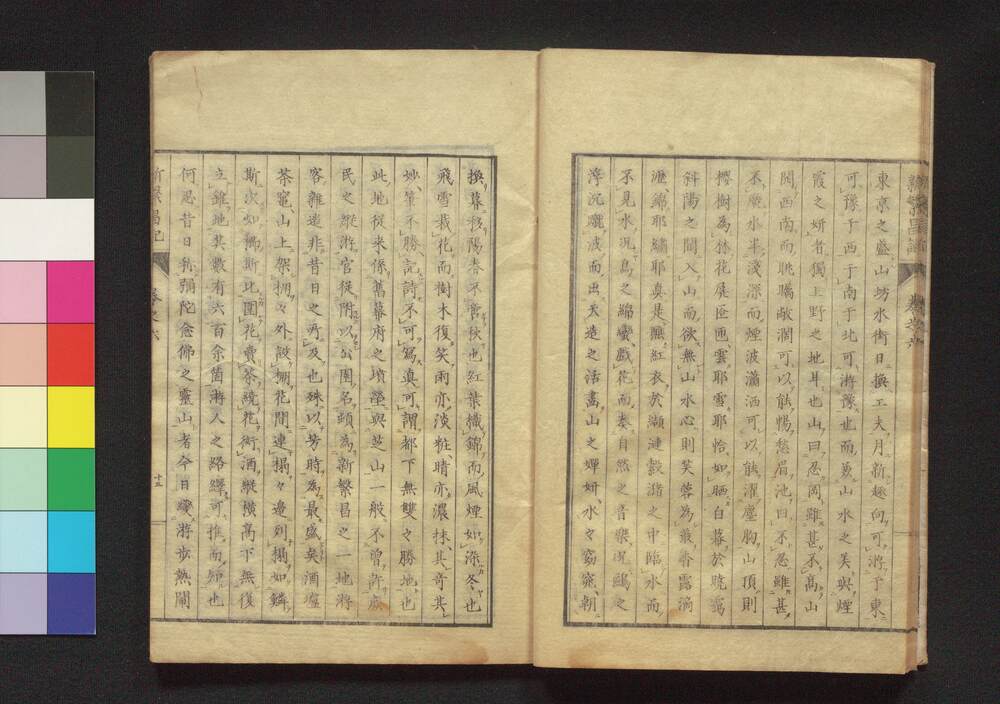 東京之盛山坊水街日撫工夫月新趣向可游于東
可豫于西于南于北可游豫也而兼山水之美與煙
霞之妍者獨上野之地耳也山曰忍岡雖甚不高山
闊西南而眺矚敞濶可以能暢愁眉池曰不忍雖甚
不廣水半淺深而煙波瀟洒可以能濯塵胸山頂則
櫻樹為林花晨匝匣雲耶雪耶恰如晒白幕於曉靄
斜陽之間入山而欲無山水心則芙蓉為叢香露滴
瀝錦耶繡耶真是蘸紅衣於纈漣縠瀦之中臨水而
不見水況鳥之綿蠻戲花而奏自然之音樂況鷗之
浮沉颺波而出天造之活畫山之嬋妍水々窈窕朝
換暮移陽春不啻秋也紅葉織錦而風煙如深冬也
飛雪裁花而樹木復笑雨亦淡粧晴亦濃抹其奇其
妙筆不勝記詩不可寫真可謂都下無雙之勝地也
此地從來係舊幕府之墳塋與芝山一般不曾許庶
民之縱游官從開以公園名頭為新繁昌之一地游
客雜遝非昔日之所及也殊以芳時為最盛矣酒壚
茶竈山上架棚々外設棚花間連榻々邊列榻如鱗
斯次如櫛斯比圍花賣茶繞花衒酒縱橫高下無復
立錐地其數有六百余箇游人之絡繹可推而知也
何忍昔日称彌陀念佛之靈山者今日變游步熱鬧
新繁昌記
卷之六
十三